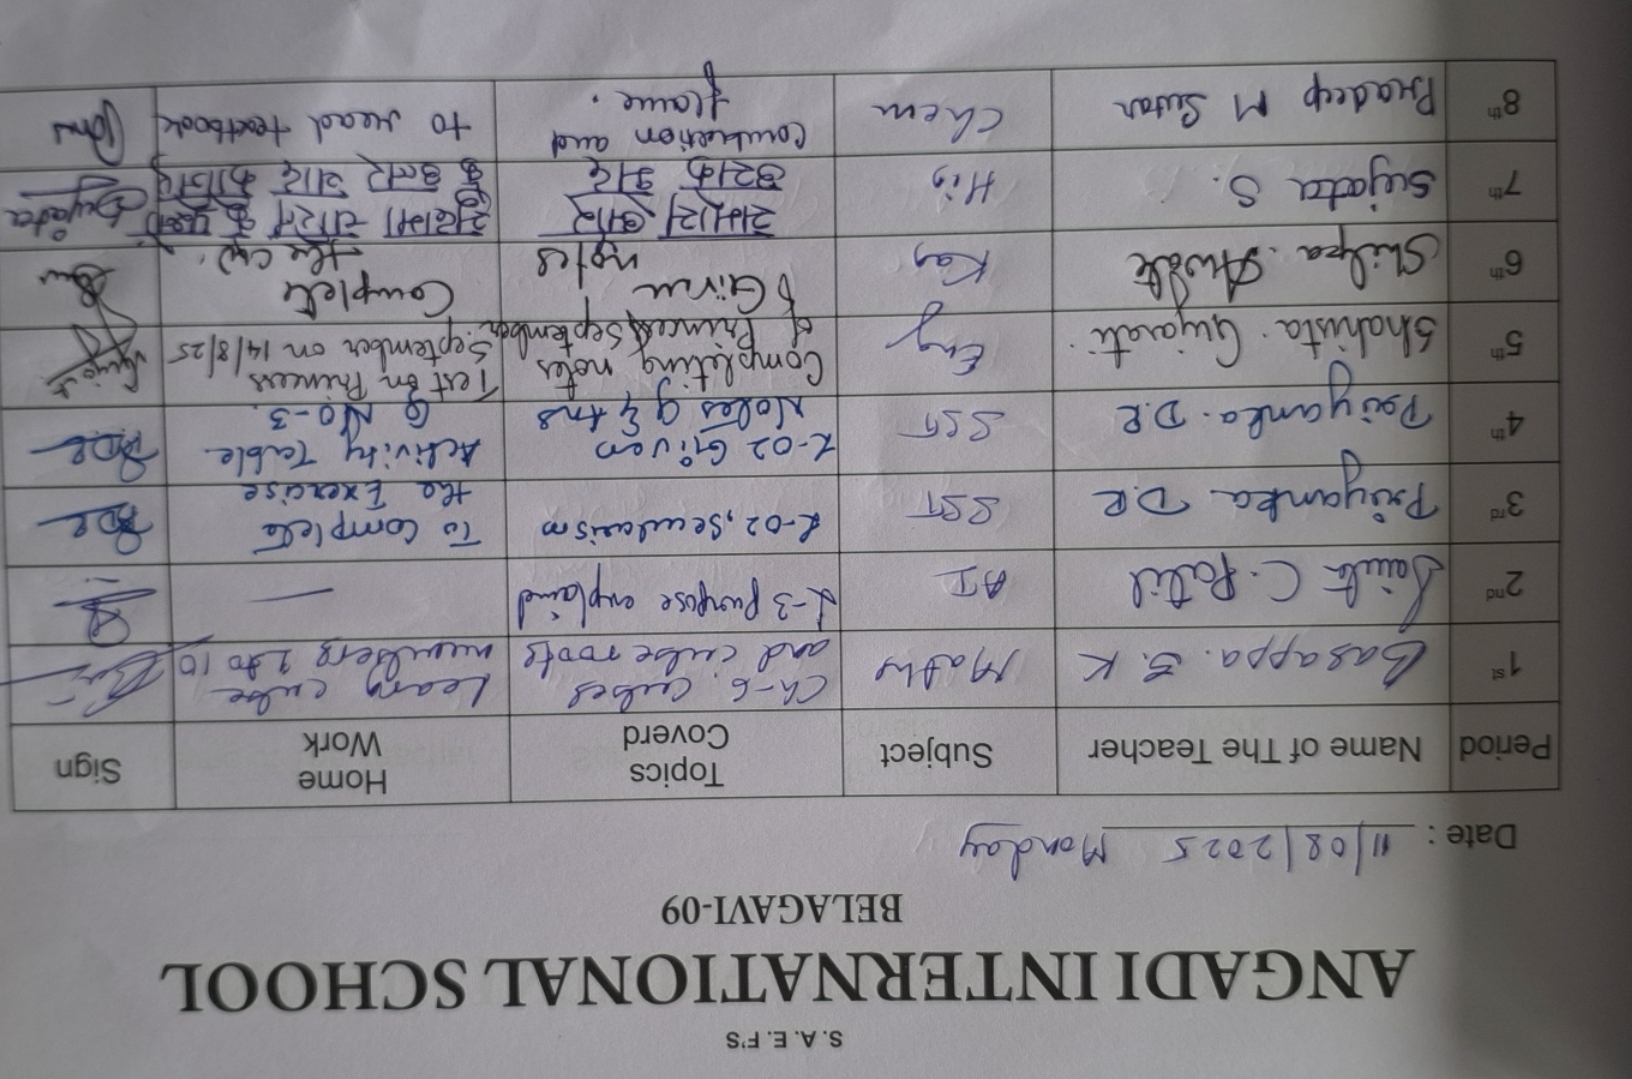 S. A. E. F'S
ANGADI INTERNATIONAL SCHOOL
BELAGAVI-09
Date : 11/08/2025 Monday
Period Name of The Teacher Subject Topics Coverd Home Work Sign
1st Basappa. S. K Maths Ch-6. cubes and cube roots Learn cube numbers 1 to 10
2nd Savita C. Patil AI L-3 purpose explaind —
3rd Priyanka D.R SST L-02, Secularism To complete the Exercise
4th Priyanka. D.R SST L-02 Given Notes Q & Ans Activity Table Q NO-3.
5th Shahista. Gujarati. Eng Completing notes of Princess September Test on Princess September on 14/8/25
6th Shilpa. Kan Given notes Complete the CW.
7th Sujata S. Hin Sujata
8th Pradeep M Sutar Chem Combustion and flame. to read textbook